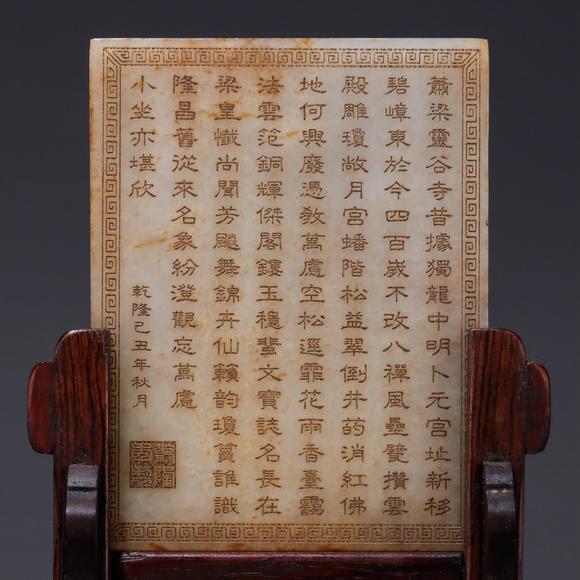 蕭梁靈谷寺昔據獨龍中明卜元宮址新移
碧嶂東於今四百歲不改八禪風疊甓攢雲
殿雕瓊敞月宮蟠階松益翠倒井葯消紅佛
地何興廢憑教萬慮空松逕霏花雨香臺靄
法雲范銅輝傑閣鏤玉穩蜚文寶誌名長在
梁皇懺尚聞芳飈舞錦卉仙籟韵瓊篔誰識
隆昌舊從來名象紛澄觀忘萬慮
小坐亦堪欣
乾隆己丑年秋月